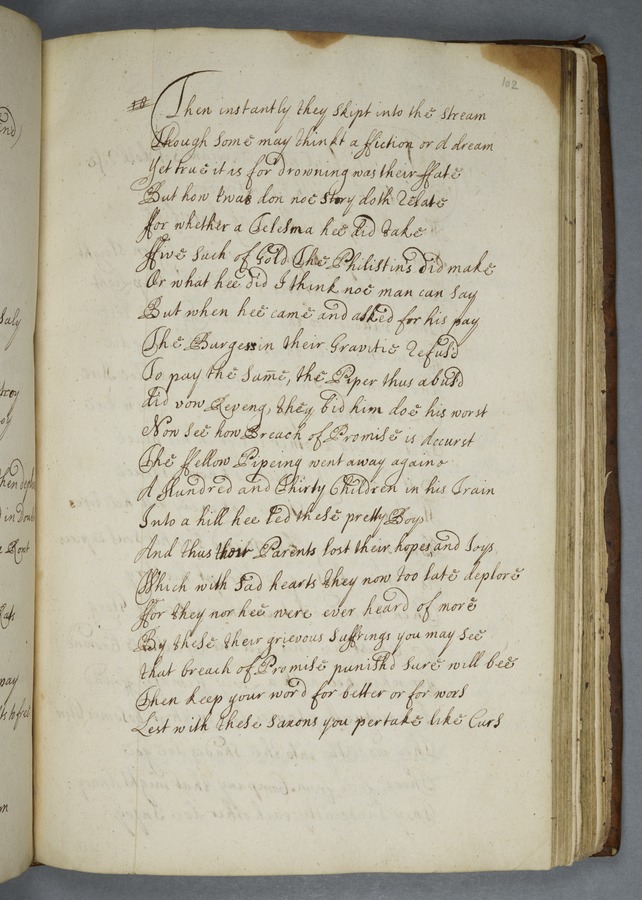 102
Then instantly they skipt into the stream
Though some may think t a ffiction or A dream
Yet true it is for drowning was their ffate
But how twas don noe story doth relate
ffor whether a Telesma hee did take
ffive such of Gold The Philistins did make
Or what hee did I think noe man can say
But when hee came and asked for his pay
The Burgess in their Gravitie refus'd
To pay the same, the Piper thus abus'd
did vow Reveng, they bid him doe his worst
Now see how Breach of Promise is accurst
The ffellow Pipeing went away againe
A Hundred and Thirty Children in his Train
Into a hill hee led these pretty Boys
And thus their Parents lost their hopes and Joys
Which with sad hearts they now too late deplore
ffor they nor hee were ever heard of more
By these their grievous suffrings you may see
that breach of Promise punish'd sure will bee
Then keep your word for better or for wors
Lest with these Saxons you pertake like Curs